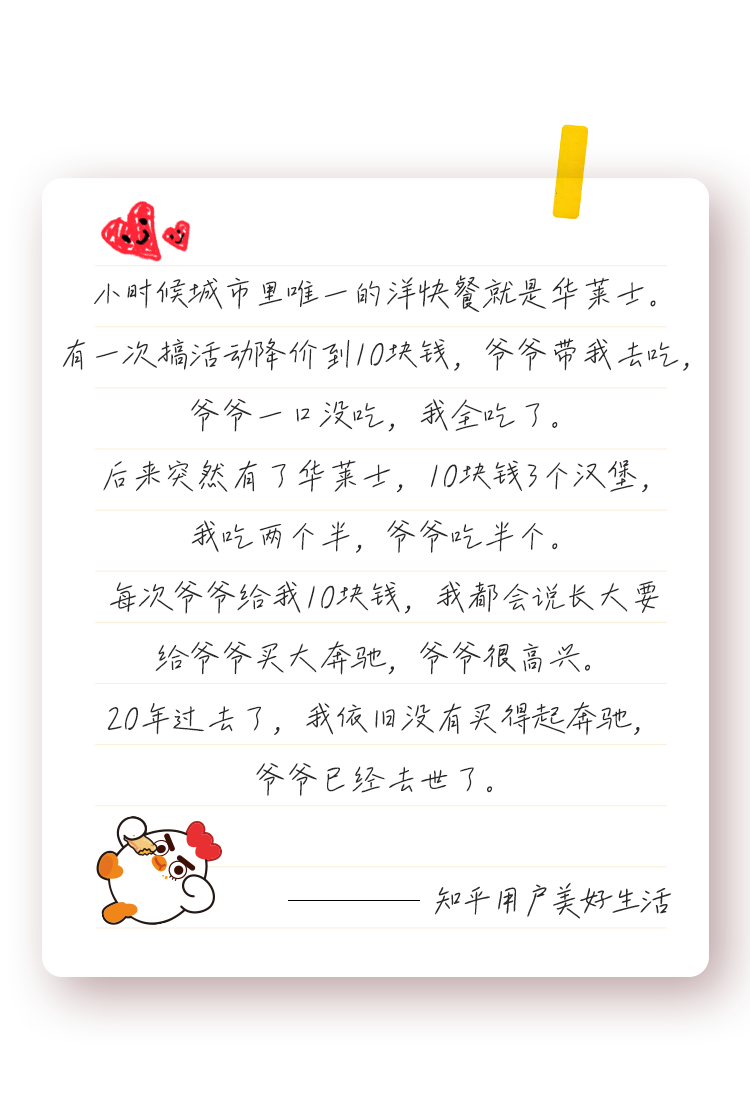 小时候城市里唯一的洋快餐就是华莱士。
有一次搞活动降价到10块钱，爷爷带我去吃，
爷爷一口没吃，我全吃了。
后来突然有了华莱士，10块钱3个汉堡，
我吃两个半，爷爷吃半个。
每次爷爷给我10块钱，我都会说长大要
给爷爷买大奔驰，爷爷很高兴。
20年过去了，我依旧没有买得起奔驰，
爷爷已经去世了。
———— 知乎用户美好生活